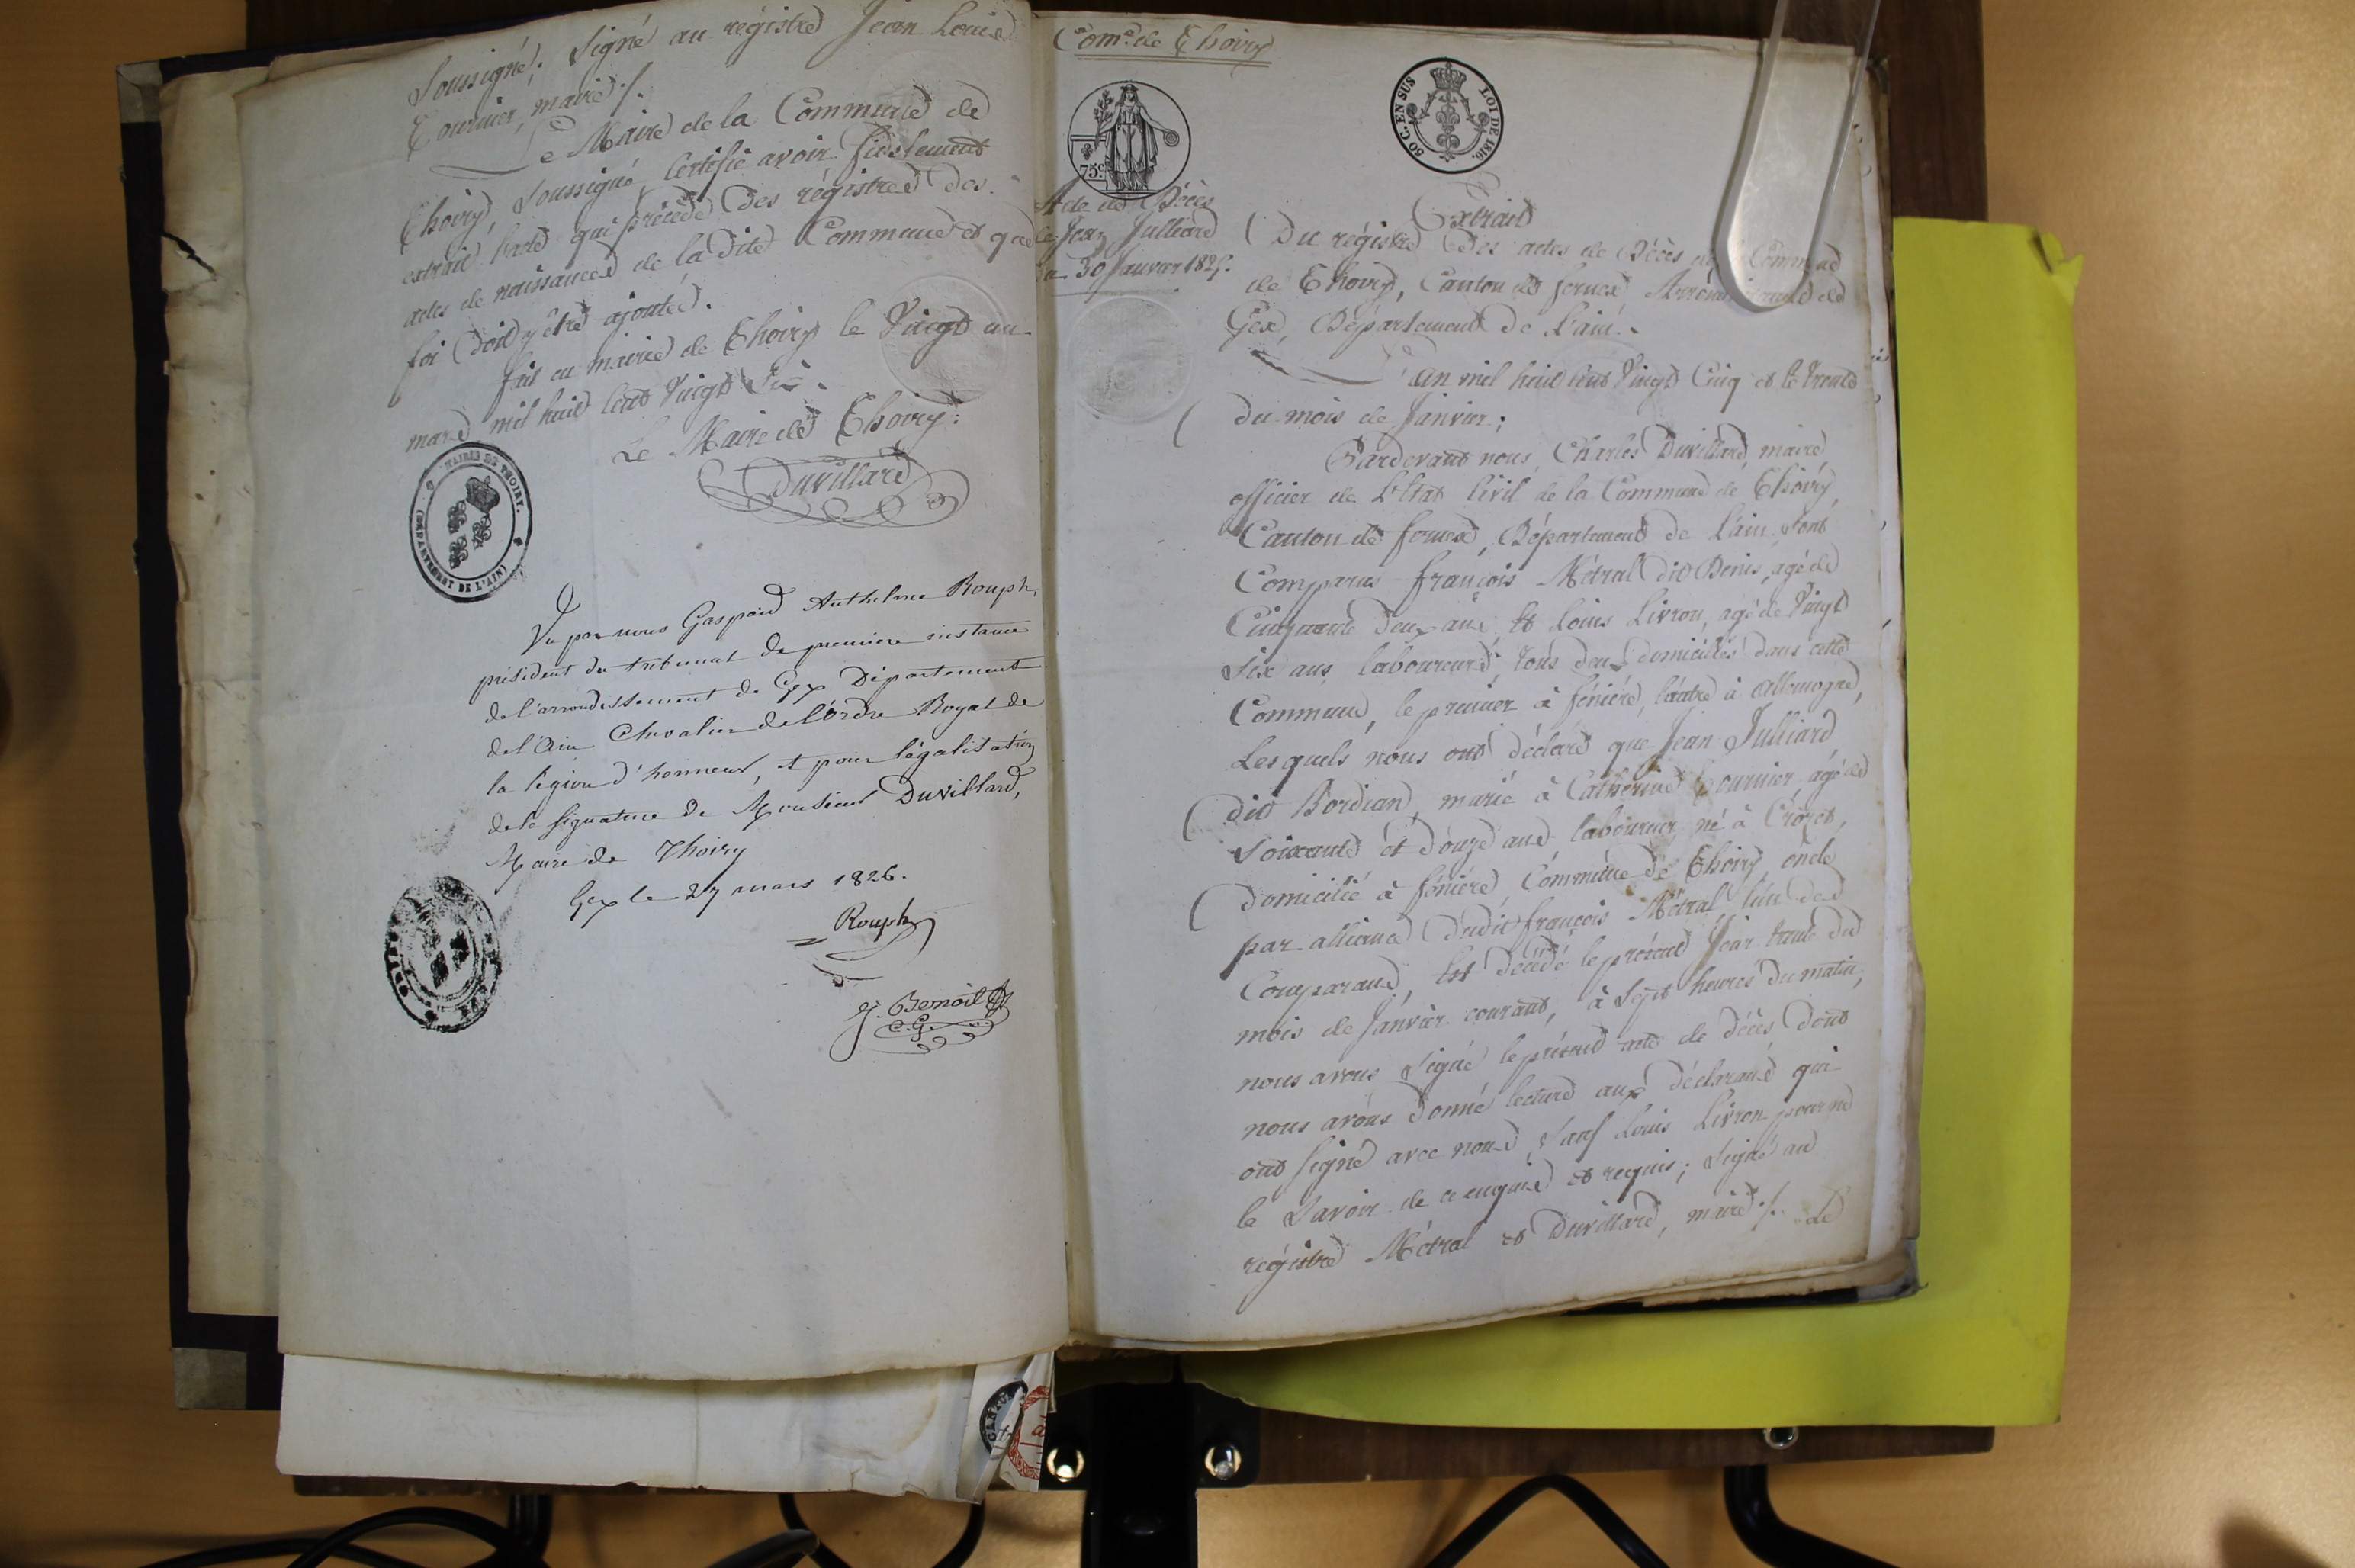 Soussigné; Signé au régistre Jean Louis
Tournier, maire ./.
Le Maire de la Commune de
Thoiry, Soussigné, Certifie avoir fidelement
extrait l'acte qui précède des régistres des
actes de naissances de la dite Commune et que
foi doit y être ajoutée.
fait en mairie de Thoiry le Vingt un
mars mil huit Cent Vingt Six.
Le Maire de Thoiry:
Duvillard
MAIRIE DE THOIRY.
(DÉPARTEMENT DE L'AIN)
Vu par nous Gaspard Anthelme Rouph,
président du tribunal de première instance
de l'arrondissement de Gex Département
de l'Ain Chevalier de l'ordre Royal de
la légion d'honneur, et pour légalisation
de la signature de Monsieur Duvillard,
Maire de Thoiry
Gex le 27 mars 1826.
Rouph
J. Benoit
C. G.
Com.e de Thoiry
75c
50 C. EN SUS
LOI DE 1816.
Acte de Décès
de Jean Julliard
du 30 Janvier 1825.
Extrait
Du régistre des actes de Décès de Commune
de Thoiry, Canton de fernex, Arrondissement de
Gex, Département de l'ain.
L'an mil huit Cent Vingt Cinq et le trente
du mois de Janvier;
Pardevant nous, Charles Duvillard, maire
officier de L'Etat Civil de la Commune de Thoiry,
Canton de fernex, Département de l'ain, Sont
Comparus françois Métral dit Denis, agé de
Cinquante deux ans, et Louis Livron, agé de Vingt
Six ans, laboureurs, tous deux domiciliés dans cette
Commune, le premier à féniére, l'autre à allemogne,
Lesquels nous ont déclaré que Jean Julliard
dit Bordian, marié à Catherine Tournier, agé de
Soixante et douze ans, laboureur, né à Crozet,
domicilié à féniére, Commune de Thoiry, oncle
par alliance dudit françois Métral l'un des
Comparans, Est décédé le présent Jour trente du
mois de Janvier courant, à Sept heures du matin,
nous avons Signé le présent acte de décès dont
nous avons donné lecture aux déclarans qui
ont Signé avec nous, Sauf Louis Livron pour ne
le Savoir de ce enquis et requis; Signé au
régistre Métral et Duvillard, maire ./. Le